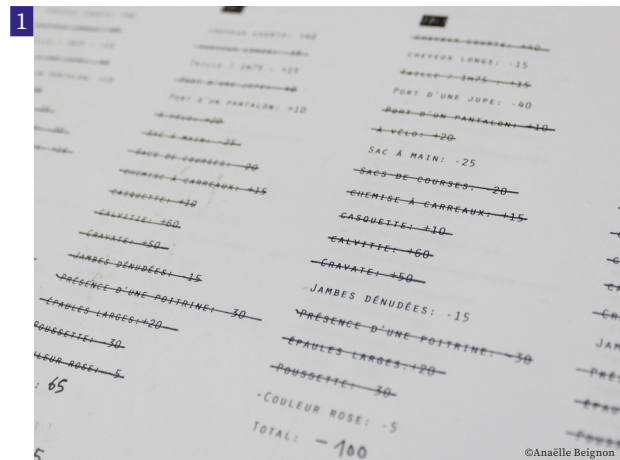 1
CHEVEUX COURTS: +40
CHEVEUX LONGS: -15
TAILLE > 1M75 : +15
PORT D'UNE JUPE: -40
PORT D'UN PANTALON: +10
À VÉLO: +20
SAC À MAIN: -25
SACS DE COURSES: -20
CHEMISE À CARREAUX: +15
CASQUETTE: +10
CALVITIE: +60
CRAVATE: +50
JAMBES DÉNUDÉES: -15
PRÉSENCE D'UNE POITRINE: -30
ÉPAULES LARGES:+20
POUSSETTE: -30
COULEUR ROSE: -5
: 65
CHEVEUX COURTS: +40
CHEVEUX LONGS: -15
TAILLE > 1M75 : +15
PORT D'UNE JUPE: -40
PORT D'UN PANTALON: +10
À VÉLO: +20
SAC À MAIN: -25
SACS DE COURSES: -20
CHEMISE À CARREAUX: +15
CASQUETTE: +10
CALVITIE: +60
CRAVATE: +50
JAMBES DÉNUDÉES: -15
PRÉSENCE D'UNE POITRINE: -30
ÉPAULES LARGES:+20
POUSSETTE: -30
COULEUR ROSE: -5
TOTAL: -100
©Anaëlle Beignon